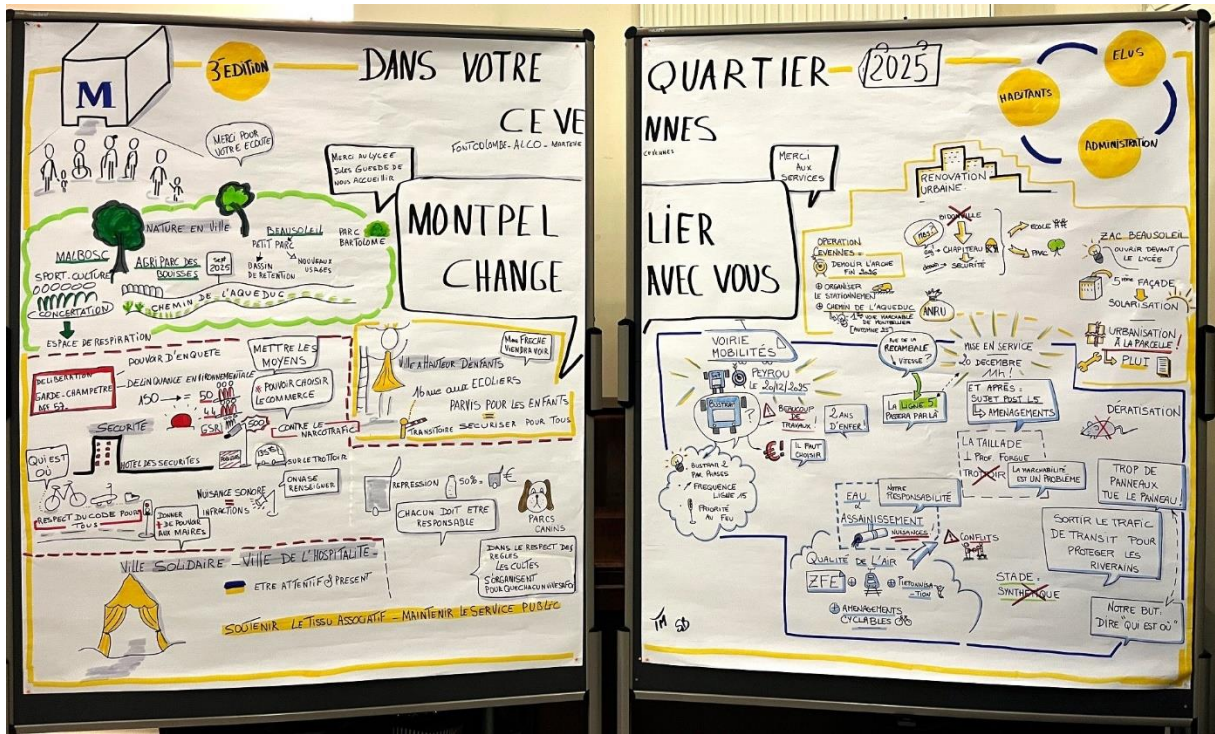 M
3 EDITION
DANS VOTRE
CEVE
FONTCOLOMBE-ALCO-
MERCI POUR
VOTRE ECOUTE
MERCI AU LYCEE
JULES GUESDE DE
NOUS ACCUEILLIR
MONTPEL
CHANGE
NATURE EN VILLE
MALBOSC
SPORT-CULTURE
CONCERTATION
AGRIPARC DES
BOUISSES
SEPT
2025
BEAUSOLEIL
PETIT PARC
BASSIN
DE RETENTION
NOUVEAUX
USAGES
PARC
BARTOLOME
CHEMIN DE L'AQUEDUC
ESPACE DE RESPIRATION
DELIBERATION
GARDE-CHAMPETRE
POUVOIR D'ENQUETE
DELINQUANCE ENVIRONNEMENTALE
150 → = 50
44
GSR
500
METTRE LES
MOYENS
* POUVOIR CHOISIR
LE COMMERCE
CONTRE LE
NARCOTRAFIC
SECURITE
HOTEL DES SECURITES
135€
SUR LE TROTTOIR
ON VA SE
RENSEIGNER
QUI EST
OÙ
RESPECT DU CODE POUR
TOUS
NUISANCE SONORE
INFRACTIONS
DONNER
+ DE POUVOIR
AUX MAIRES
MME FRECHE
VIENDRA VOIR
VILLE A HAUTEUR D'ENFANTS
16 RUE AUX ECOLIERS
PARVIS POUR LES ENFANTS
TRANSITOIRE SECURISER POUR TOUS
REPRESSION
50%
€
CHACUN DOIT ETRE
RESPONSABLE
PARCS
CANINS
VILLE SOLIDAIRE - VILLE DE L'HOSPITALITE
ETRE ATTENTIF & PRESENT
DANS LE RESPECT DES
REGLES
LES CULTES
S'ORGANISENT
SOUTENIR LE TISSU ASSOCIATIF - MAINTENIR LE SERVICE PUBLIC
QUARTIER
2025
NNES
CEVENNES
MERCI
AUX
SERVICES
LIER
AVEC VOUS
ELUS
HABITANTS
ADMINISTRATION
RENOVATION
URBAINE
OPERATION
CEVENNES:
DEMOLIR L'ARCHE
FIN 2026
⊕ ORGANISER
LE STATIONNEMENT
⊕ CHEMIN DE L'AQUEDUC
VOIE MARCHABLE
DE MONTPELLIER
ANRU
BIDONVILLE
CHAPITEAU
SECURITÉ
ECOLE
PARC
ZAC BEAUSOLEIL
OUVRIR DEVANT
LE LYCÉE
5ème FAÇADE
SOLARISATION
URBANISATION
À LA PARCELLE!
PLUI
VOIRIE
MOBILITÉS
PEYROU
LE 20/12/2025
BUSTRAM
?
BEAUCOUP
DE
TRAVAUX!
2 ANS
D'ENFER!
€!
IL FAUT
CHOISIR
BUSTRAM 2
PAR PHASES
FREQUENCE
LIGNE 15
PRIORITÉ
AU FEU
RUE DE LA
RECAMBALE
VITESSE?
LA LIGNE 5
PASSERA PAR LÀ
MISE EN SERVICE
20 DECEMBRE
11H!
ET APRÈS:
SUJET POST L5
AMENAGEMENTS
LA TAILLADE
PROF. FORGUE
TROTTOIR
LA MARCHABILITÉ
EST UN PROBLÈME
DÉRATISATION
TROP DE
PANNEAUX
TUE LE PANNEAU!
EAU
&
ASSAINISSEMENT
NOTRE
RESPONSABILITÉ
NUISANCES
CONFLITS
SORTIR LE TRAFIC
DE TRANSIT POUR
PROTEGER LES
RIVERAINS
QUALITÉ DE L'AIR
ZFE
PIETONNISA-
TION
⊕ AMENAGEMENTS
CYCLABLES
STADE:
SYNTHÉTIQUE
NOTRE BUT:
DIRE "QUI EST OÙ"